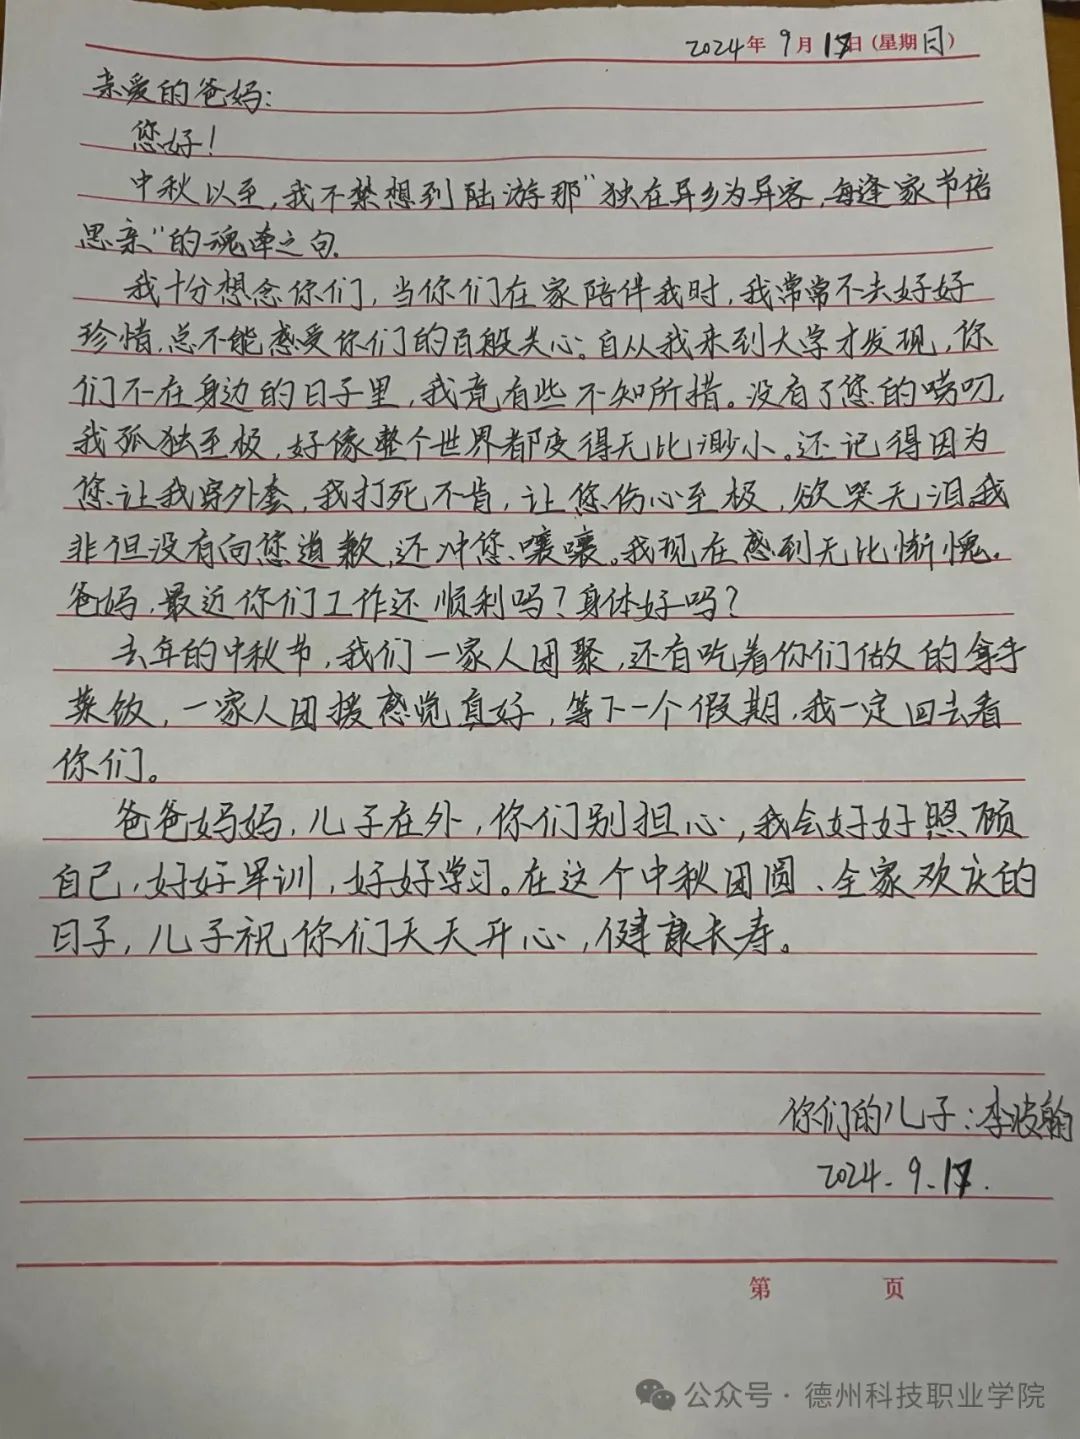 2024年 9月17日(星期日)
亲爱的爸妈:
您好!
中秋以至,我不禁想到陆游那"独在异乡为异客,每逢家节倍
思亲"的魂牵之句.
我十分想念你们,当你们在家陪伴我时,我常常不去好好
珍惜,总不能感受你们的百般关心。自从我来到大学才发现,你
们不在身边的日子里,我竟有些不知所措。没有了您的唠叨,
我孤独至极,好像整个世界都变得无比渺小。还记得因为
您让我穿外套,我打死不肯,让您伤心至极,欲哭无泪。我
非但没有向您道歉,还冲您嚷嚷。我现在感到无比惭愧。
爸妈,最近你们工作还顺利吗?身体好吗?
去年的中秋节,我们一家人团聚,还有吃着你们做的拿手
菜饭,一家人团援感觉真好,等下一个假期,我一定回去看
你们。
爸爸妈妈,儿子在外,你们别担心,我会好好照顾
自己,好好军训,好好学习。在这个中秋团圆、全家欢庆的
日子,儿子祝你们天天开心,健康长寿。
你们的儿子:李波翰
2024.9.17.
第 页
公众号·德州科技职业学院